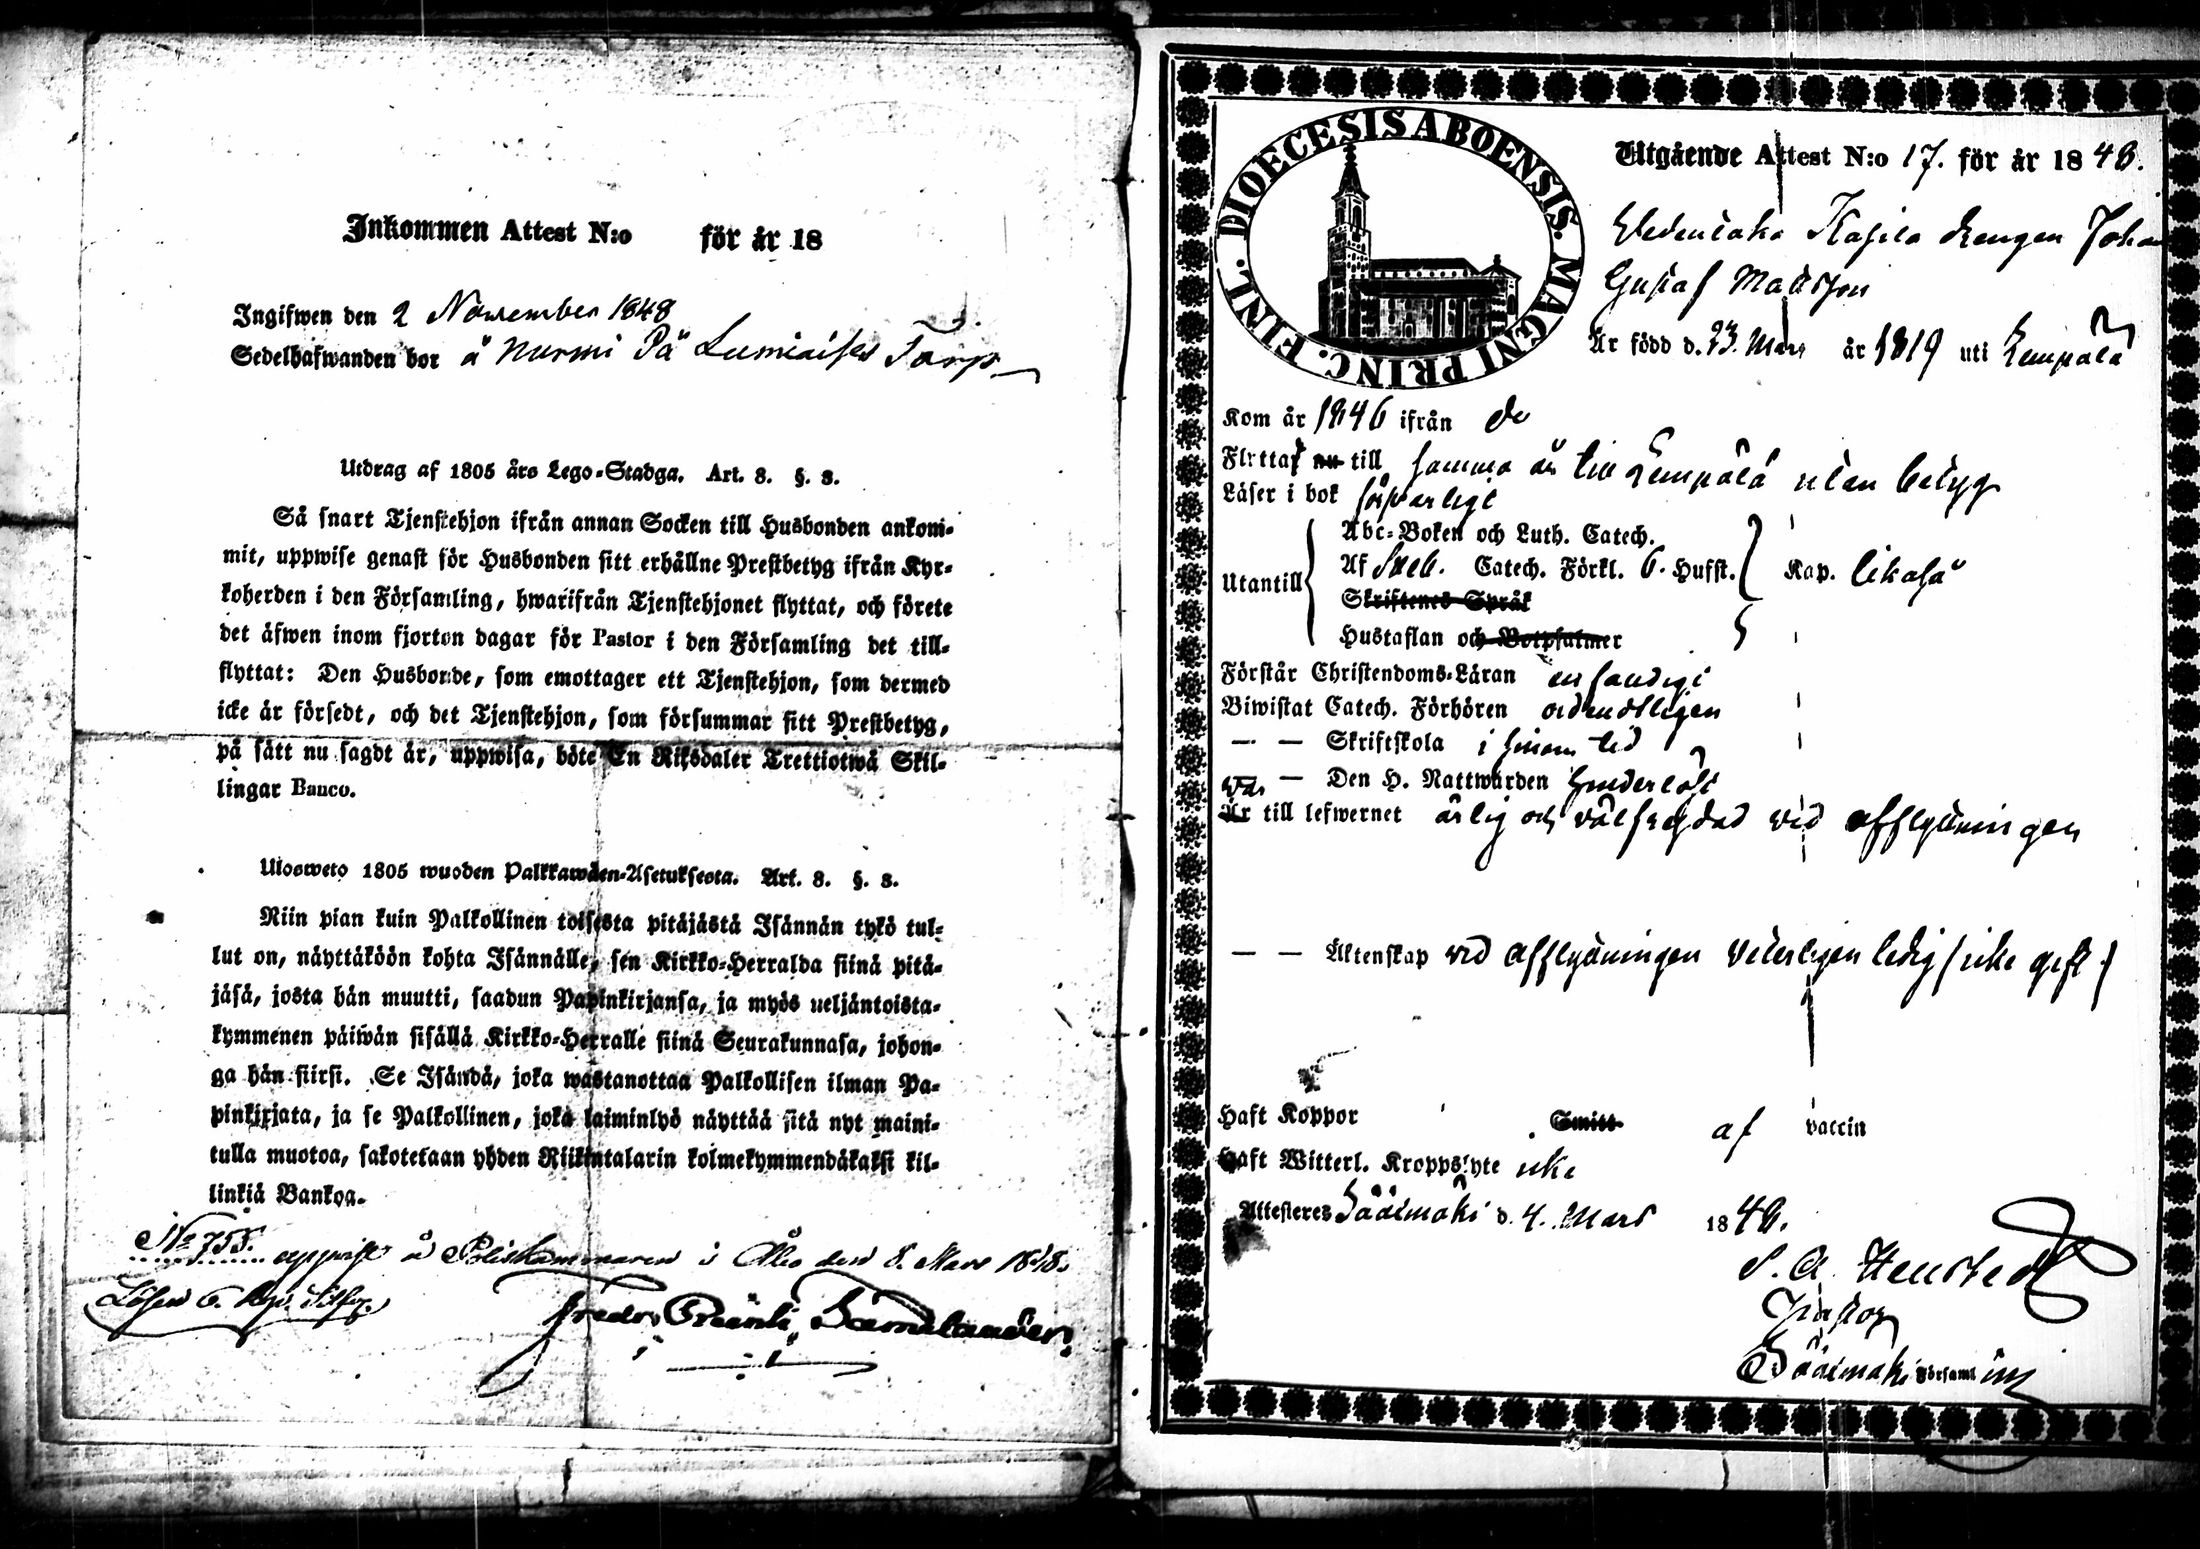 Inkommen Attest N:o för år 18
Ingifwen den 2 November 1848
Sedelhafwanden bor å Nurmi På Lumiaises Torp
Utdrag af 1805 års Lego-Stadga. Art. 8. §. 3.
Så snart Tjenstehjon ifrån annan Socken till Husbonden ankom-
mit, uppwise genast för Husbonden sitt erhållne Prestbetyg ifrån Kyr-
koherden i den Församling, hwarifrån Tjenstehjonet flyttat, och förete
det äfwen inom fjorton dagar för Pastor i den Församling det till-
flyttat: Den Husbonde, som emottager ett Tjenstehjon, som dermed
icke är försedt, och det Tjenstehjon, som försummar sitt Prestbetyg,
på sätt nu sagdt är, uppwisa, böte En Riksdaler Trettiotwå Skil-
lingar Banco.
Ulosweto 1805 wuoden Palkkawäen-Asetuksesta. Art. 8. §. 3.
Niin pian kuin Palkollinen toisesta pitäjästä Isännän tykö tul-
lut on, näyttäköön kohta Isännälle, sen Kirkko-Herralda siinä pitä-
jäsä, josta hän muutti, saadun Papinkirjansa, ja myös neljäntoista-
kymmenen päiwän sisällä Kirkko-Herralle siinä Seurakunnasa, johon-
ga hän siirsi. Se Isändä, joka wastanottaa Palkollisen ilman Pa-
pinkirjata, ja se Palkollinen, joka laiminlyö näyttää sitä nyt maini-
tulla muotoa, sakotetaan yhden Riikintalarin kolmekymmendäkaksi kil-
linkiä Bankoa.
No 755. uppvist å Poliskammaren i Åbo den 8. Mars 1848.
Lösen 6. Kop. Silfv.
Fredr.
DIOECESIS ABOENSIS. MAGNI PRINC. FINL.
Utgående Attest N:o 17. för år 1848.
Kasila drengen Johan
Gustaf Madsson
Är född d. 23. Mars år 1819 uti Lempälä
Kom år 1846 ifrån do
Flyttat nu till samma år till Lempälä utan betyg
Läser i bok försvarligt
Utantill
Abc-Boken och Luth. Catech.
Af Sveb. Catech. Förkl. 6. Hufst. Kap. likaså
Skriftenes Språk
Hustaflan och Botpsalmer
Förstår Christendoms-Läran enfaldigt
Biwistat Catech. Förhören ordentligen
— — Skriftskola i sinom tid
— Den H. Nattwarden hinderlöst
var
Är till lefwernet ärlig och välfrejdad vid afflyttningen
— — Äktenskap vid afflyttningen veterligen ledig (icke gift)
Haft Koppor Smitt af vaccin
Haft Witterl. Kroppslyte icke
Attesteres Sääxmäki d. 4. Mars 1848.
Pastor
Sääxmäki Församl